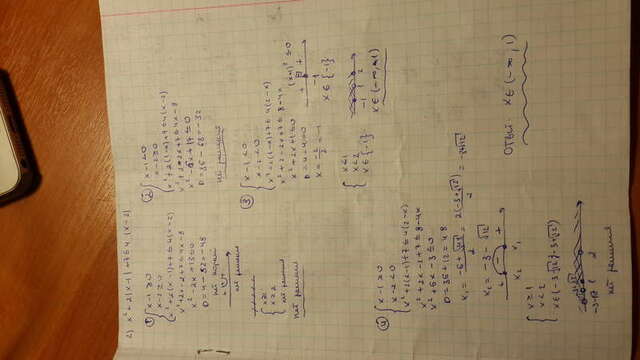 2) x² + 2|x-1| + 7 ≤ 4 |x-2|
① { x-1 ≥ 0
x-2 ≥ 0
x² + 2(x-1) + 7 ≤ 4(x-2)
x² + 2x - 2 + 7 ≤ 4x - 8
x² - 2x + 13 ≤ 0
D = 4 - 52 = -48
нет корней
+ + +
нет решения
{ x ≥ 1
x ≥ 2
нет решения
нет решения
② { x-1 < 0
x-2 ≥ 0
x² + 2(1-x) + 7 ≤ 4(x-2)
x² + 2 - 2x + 7 ≤ 4x - 8
x² - 6x + 17 ≤ 0
D = 36 - 68 = -32
нет решения
③ { x-1 < 0
x-2 < 0
x² + 2(1-x) + 7 ≤ 4(2-x)
x² + 2 - 2x + 7 ≤ 8 - 4x
x² + 2x + 1 ≤ 0
D = 4 - 4 = 0
x = -2/2 = -1
(x+1)² ≤ 0
+ +
-1
x ∈ {-1}
{ x < 1
x < 2
x ∈ {-1}
-1 1 2
x ∈ (-∞, 1)
④ { x-1 ≥ 0
x-2 < 0
x² + 2(x-1) + 7 ≤ 4(2-x)
x² + 2x - 2 + 7 ≤ 8 - 4x
x² + 6x - 3 ≤ 0
D = 36 + 12 = 48
x₁ = -6 + √48 / 2 = 2(-3 + √12) / 2 = -3 + √12
x₂ = -3 - √12
+ - +
x₂ x₁
{ x ≥ 1
x < 2
x ∈ (-3 - √12; -3 + √12)
-3+√12
-3-√12 1 2
нет решения
Ответ: x ∈ (-∞, 1)